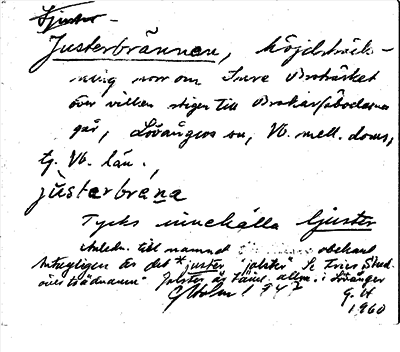 Ljuster
Justerbrännan, höjdsträck-
ning norr om Inre
över vilken stigen till
går, Lövångers sn, Vb. mell. doms.
tg. Vb. län.
jùsterbrέna
Tycks innehålla ljuster
Anledn. till namnet obekant
Antagligen är det *juster "jolster" Se Fries Stud.
över trädnamn" Jolster är känt. allm. i Lövånger
G Holm 1947 G. H
1960